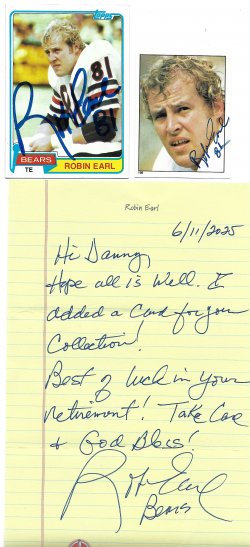 topps
81
BEARS
TE
ROBIN EARL
Robin Earl
81
Robin Earl
82
Robin Earl
6/11/2025
Hi Danny,
Hope all is Well. I
added a Card for your
Collection!
Best of luck in Your
Retirement! Take Care
& God Bless!
Robin Earl
Bears